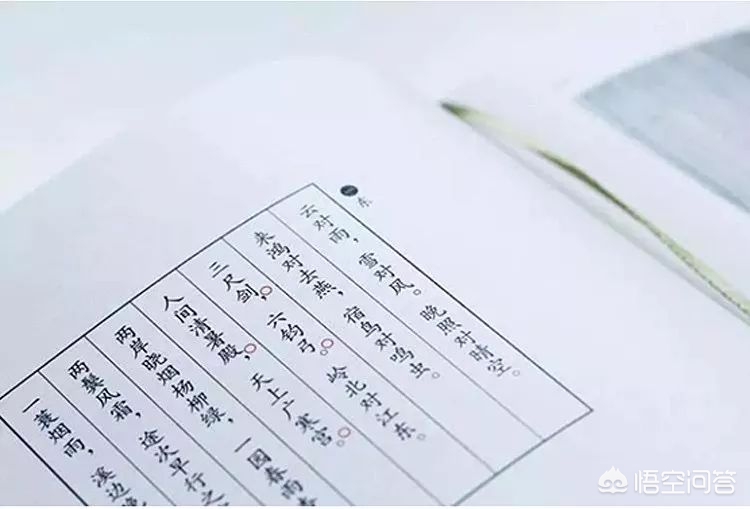 东
云对雨，雪对风。晚照对晴空。
来鸿对去燕，宿鸟对鸣虫。
三尺剑，六钧弓。岭北对江东。
人间清暑殿，天上广寒宫。
两岸晓烟杨柳绿，一园春雨
两鬓风霜，途次早行之
一蓑烟雨，溪边晚
悟空问答